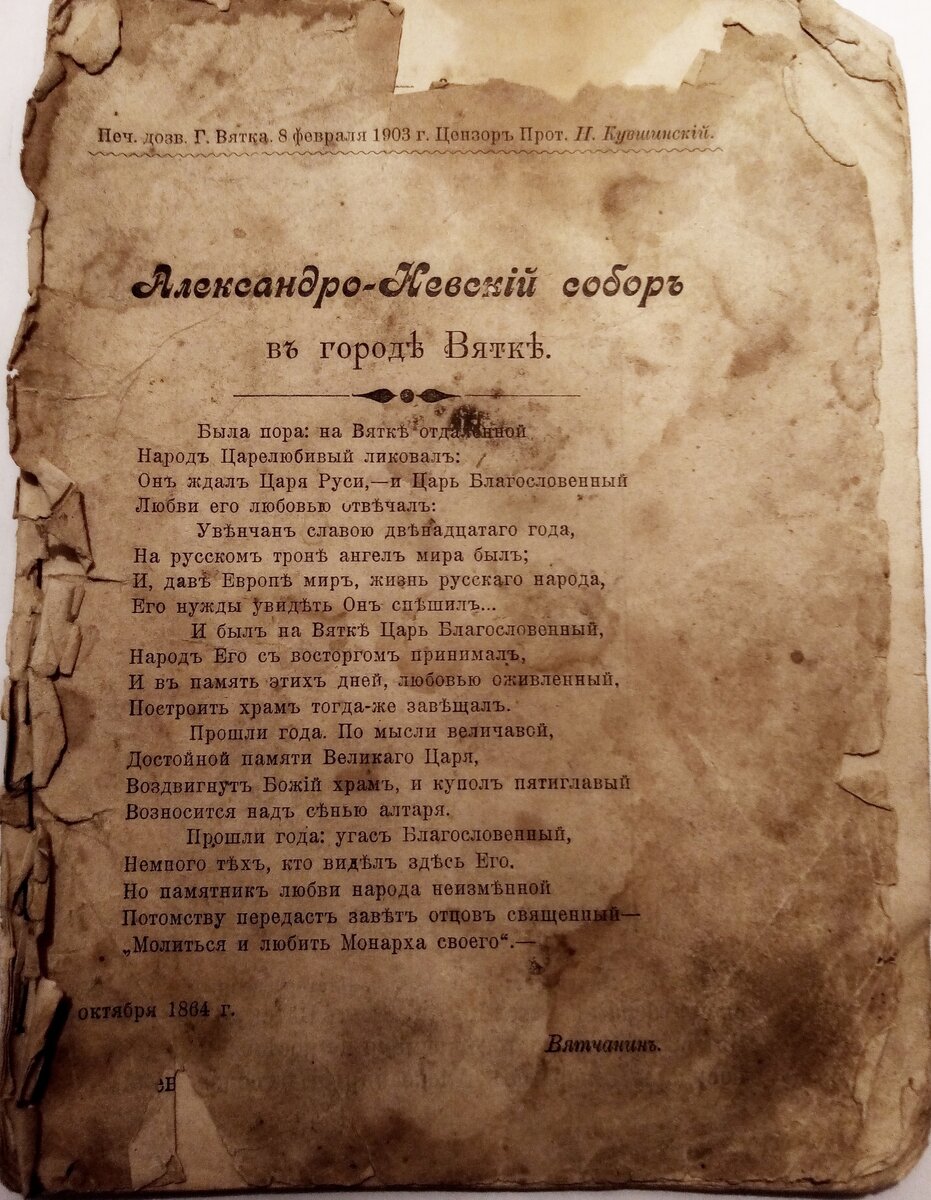 Печ. дозв. Г. Вятка. 8 февраля 1903 г. Цензоръ Прот. Н. Кувшинскій.
Александро-Невскій соборъ
въ городѣ Вяткѣ.
Была пора: на Вяткѣ отдаленной
Народъ Царелюбивый ликовалъ:
Онъ ждалъ Царя Руси,—и Царь Благословенный
Любви его любовью отвѣчалъ:
Увѣнчанъ славою двѣнадцатаго года,
На русскомъ тронѣ ангелъ мира былъ;
И, давѣ Европѣ миръ, жизнь русскаго народа,
Его нужды увидѣть Онъ спѣшилъ...
И былъ на Вяткѣ Царь Благословенный,
Народъ Его съ восторгомъ принималъ,
И въ память этихъ дней, любовью оживленный,
Построить храмъ тогда-же завѣщалъ.
Прошли года. По мысли величавой,
Достойной памяти Великаго Царя,
Воздвигнутъ Божій храмъ, и куполъ пятиглавый
Возносится надъ сѣнью алтаря.
Прошли года: угасъ Благословенный,
Немного тѣхъ, кто видѣлъ здѣсь Его.
Но памятникъ любви народа неизмѣнной
Потомству передастъ завѣтъ отцовъ священный—
„Молиться и любить Монарха своего“.—
октября 1864 г.
Вятчанинъ.